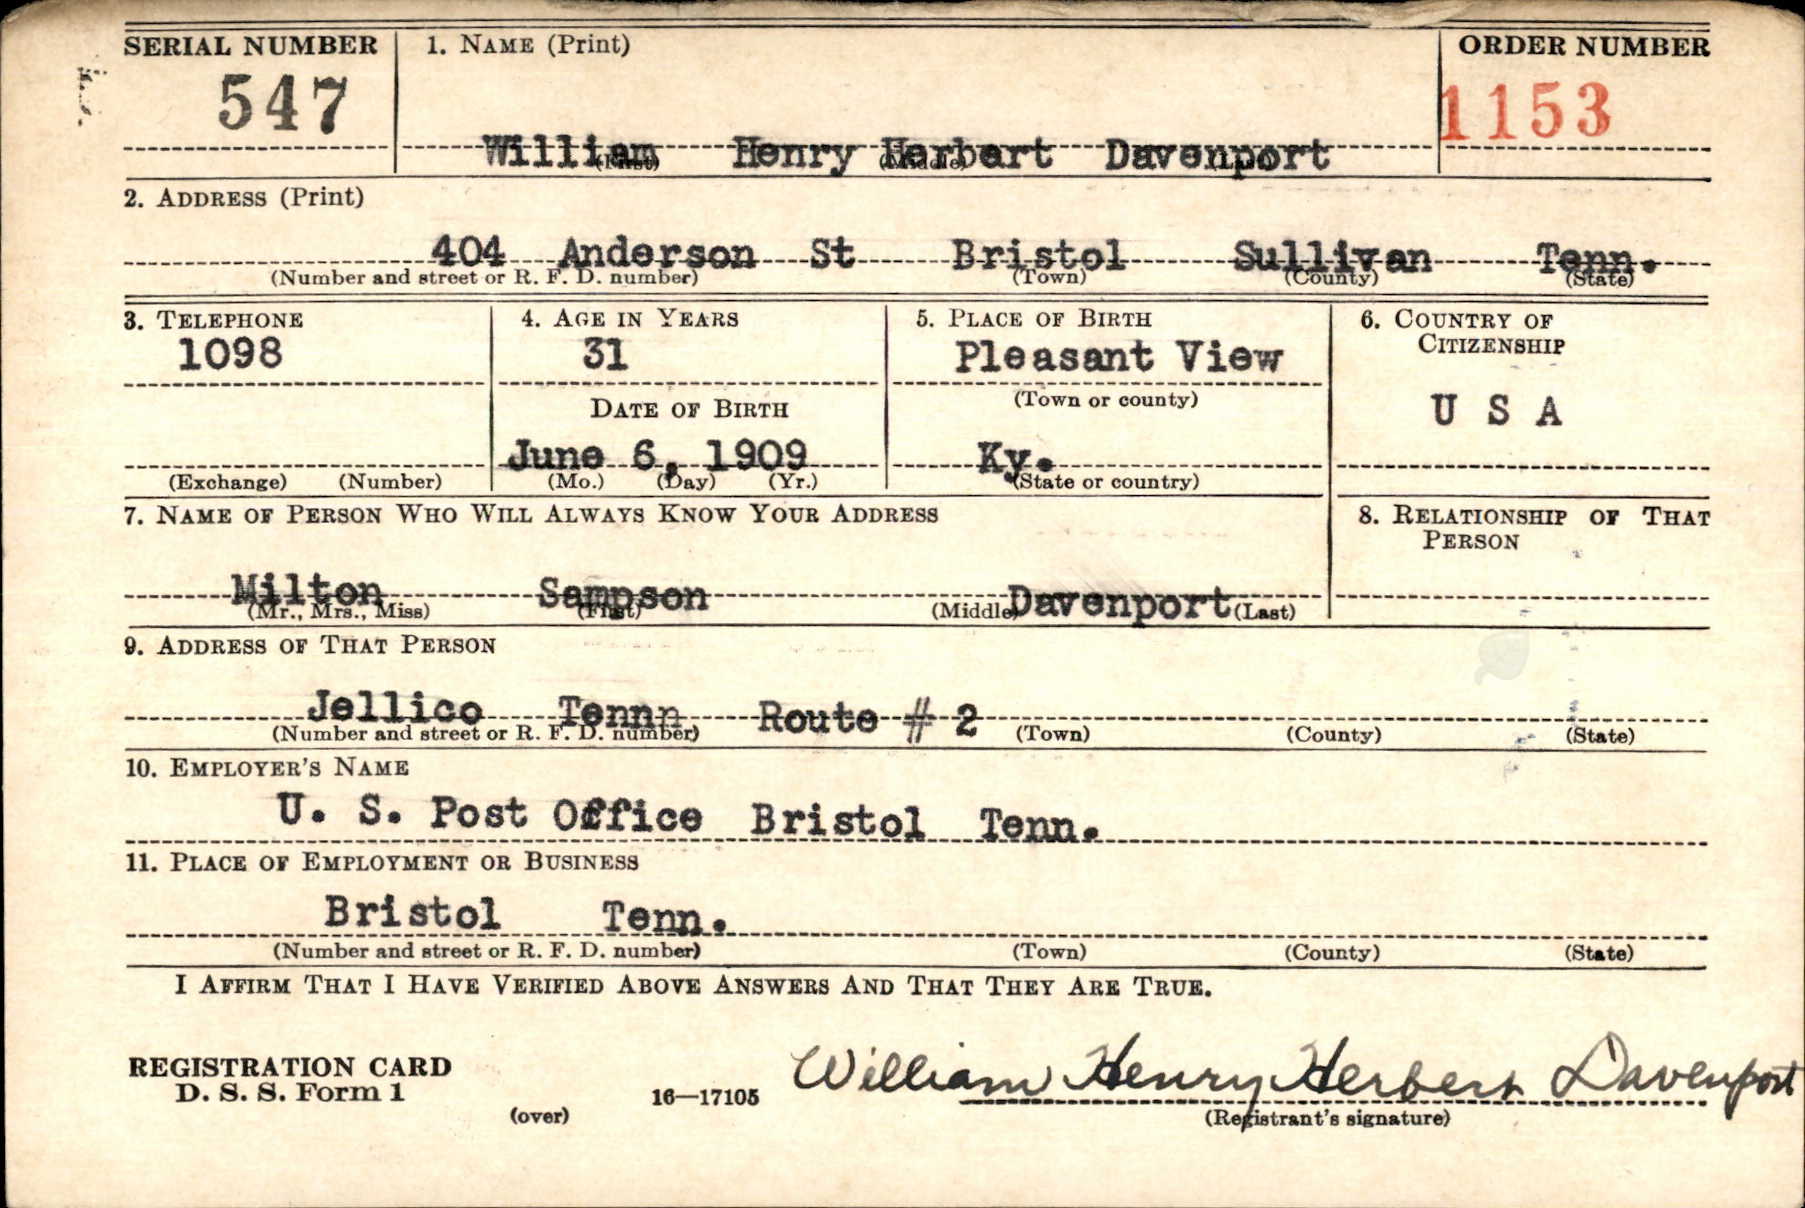 SERIAL NUMBER 1. NAME (Print) ORDER NUMBER
547 1153
William Henry Herbert Davenport
(First) (Middle) (Last)
2. ADDRESS (Print)
404 Anderson St Bristol Sullivan Tenn.
(Number and street or R. F. D. number) (Town) (County) (State)
3. TELEPHONE 4. AGE IN YEARS 5. PLACE OF BIRTH 6. COUNTRY OF
CITIZENSHIP
1098 31 Pleasant View
DATE OF BIRTH (Town or county) U S A
June 6, 1909 Ky.
(Exchange) (Number) (Mo.) (Day) (Yr.) (State or country)
7. NAME OF PERSON WHO WILL ALWAYS KNOW YOUR ADDRESS 8. RELATIONSHIP OF THAT
PERSON
Milton Sampson Davenport
(Mr., Mrs., Miss) (First) (Middle) (Last)
9. ADDRESS OF THAT PERSON
Jellico Tennn Route # 2
(Number and street or R. F. D. number) (Town) (County) (State)
10. EMPLOYER'S NAME
U. S. Post Office Bristol Tenn.
11. PLACE OF EMPLOYMENT OR BUSINESS
Bristol Tenn.
(Number and street or R. F. D. number) (Town) (County) (State)
I AFFIRM THAT I HAVE VERIFIED ABOVE ANSWERS AND THAT THEY ARE TRUE.
REGISTRATION CARD William Henry Herbert Davenport
D. S. S. Form 1 16—17105
(over) (Registrant's signature)